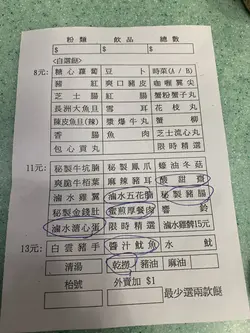 粉麵 飲品 總數
$ $ $
<自選餸>
8元: 糖心蘿蔔 豆卜 時菜(A/B)
豬紅 爽口豬皮 咖喱翼尖
芝士腸 蟹粉蟹子丸
長洲大魚旦 雪耳 花枝丸
陳皮魚旦(辣) 漿爆牛丸 蟹柳
香腸 魚肉 芝士流心丸
包心貢丸 限時精選
11元: 秘製牛坑腩 秘製鳳爪 蠔油冬菇
爽脆牛栢葉 麻辣豬耳 酸甜齋
滷水雞翼 滷水五花腩 秘製豬腸
秘製金錢肚 蜜煎厚餐肉 響鈴
滷水溏心蛋 限時精選 滷水雞髀15元
13元: 白雲豬手 醬汁魷魚 水魷
清湯 乾撈 豬油 麻油
枱號 外賣加 $1
最少選兩款餸